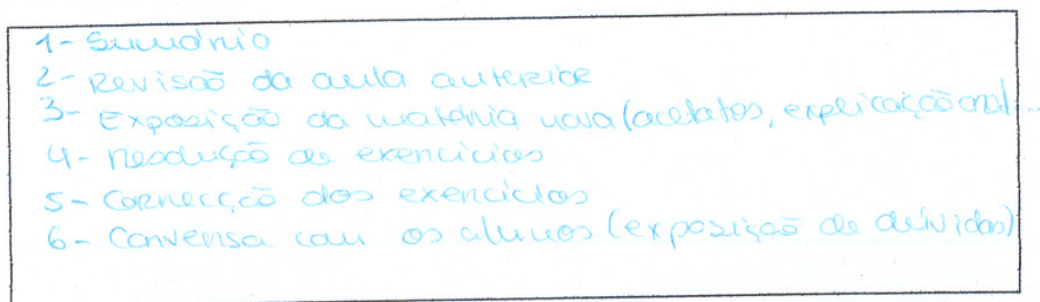 1- Sumário
2- Revisão da aula anterior
3- Exposição da matéria nova (acetatos, explicação oral...
4- Resolução de exercícios
5- Correcção dos exercícios
6- Conversa com os alunos (exposição de dúvidas)